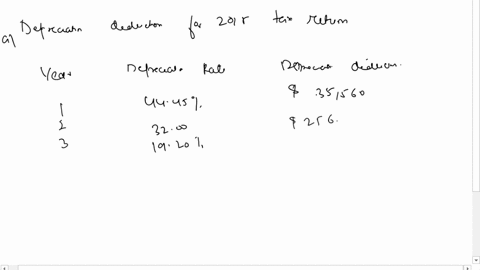 a) Depreciation deduction for 2018 tax return
Year Depreciate Rate Depreciat deduction.
1 44.45% $ 35,560
2 32.00 $ 256.
3 19.20%